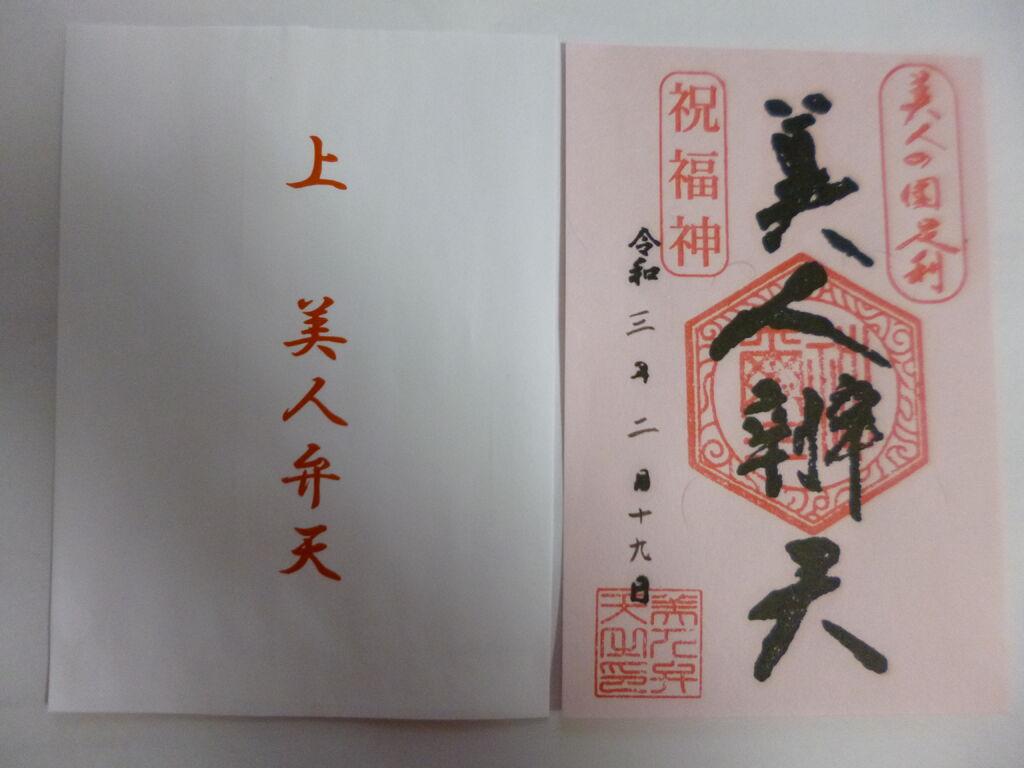 上 美人弁天
美人の國足利
美人辨天
祝福神
令和三年二月十九日
美人弁
天之印